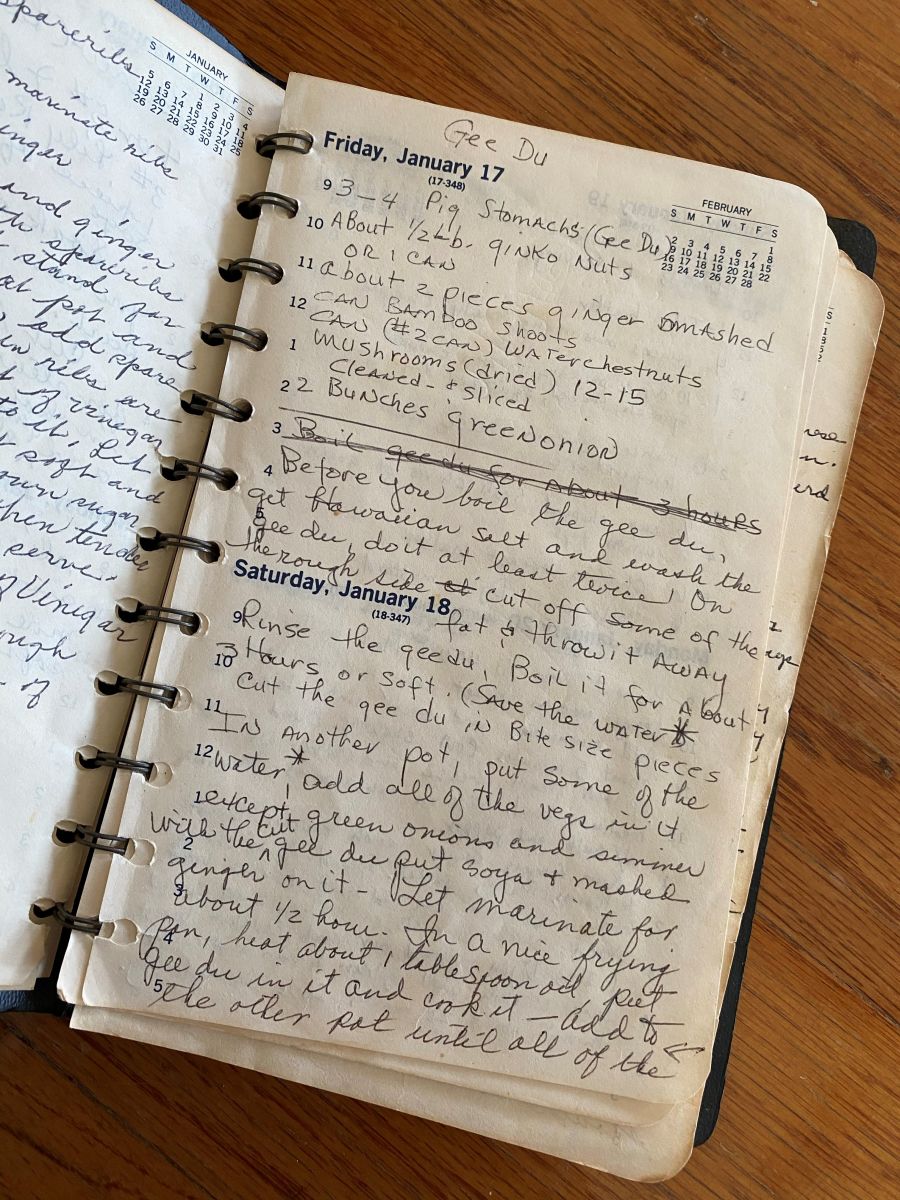 spareribs
marinate ribs
inger
and ginger
th spareribs
stand for
at pot and
add spare
in ribs are
t of vinegar
to it. Let
soft and
own sugar
when tender
serve.
Vinigar
ough
of
JANUARY
S M T W T F S
1 2 3 4
5 6 7 8 9 10 11
12 13 14 15 16 17 18
19 20 21 22 23 24 25
26 27 28 29 30 31
Gee Du
Friday, January 17
(17-348)
FEBRUARY
S M T W T F S
1
2 3 4 5 6 7 8
9 10 11 12 13 14 15
16 17 18 19 20 21 22
23 24 25 26 27 28
9 3-4 Pig Stomachs (Gee Du)
10 About 1/2 Lb. ginko nuts
OR 1 CAN
11 about 2 pieces ginger smashed
12 CAN BAMBOO shoots
CAN (#2 CAN) WATERchestnuts
1 mushrooms (dried) 12-15
Cleaned - & sliced
2 2 Bunches green onion
3 Boil gee du for About 3 hours
4 Before you boil the gee du,
get Hawaiian salt and wash the
5 gee du, do it at least twice! On
the rough side cut off some of the
Saturday, January 18
(18-347)
fat & throw it AWAY
9 Rinse the gee du, Boil it for About
3 Hours or soft. (Save the water*)
10 Cut the gee du in Bite size pieces
11 IN Another pot, put some of the
12 water*, add all of the vegs in it
1 except green onions and simmer
With the cut gee du put soya + mashed
2 ginger on it - Let marinate for
3 about 1/2 hour. In a nice frying
4 pan, heat about 1 tablespoon oil put
gee du in it and cook it - add to
5 the other pot until all of the